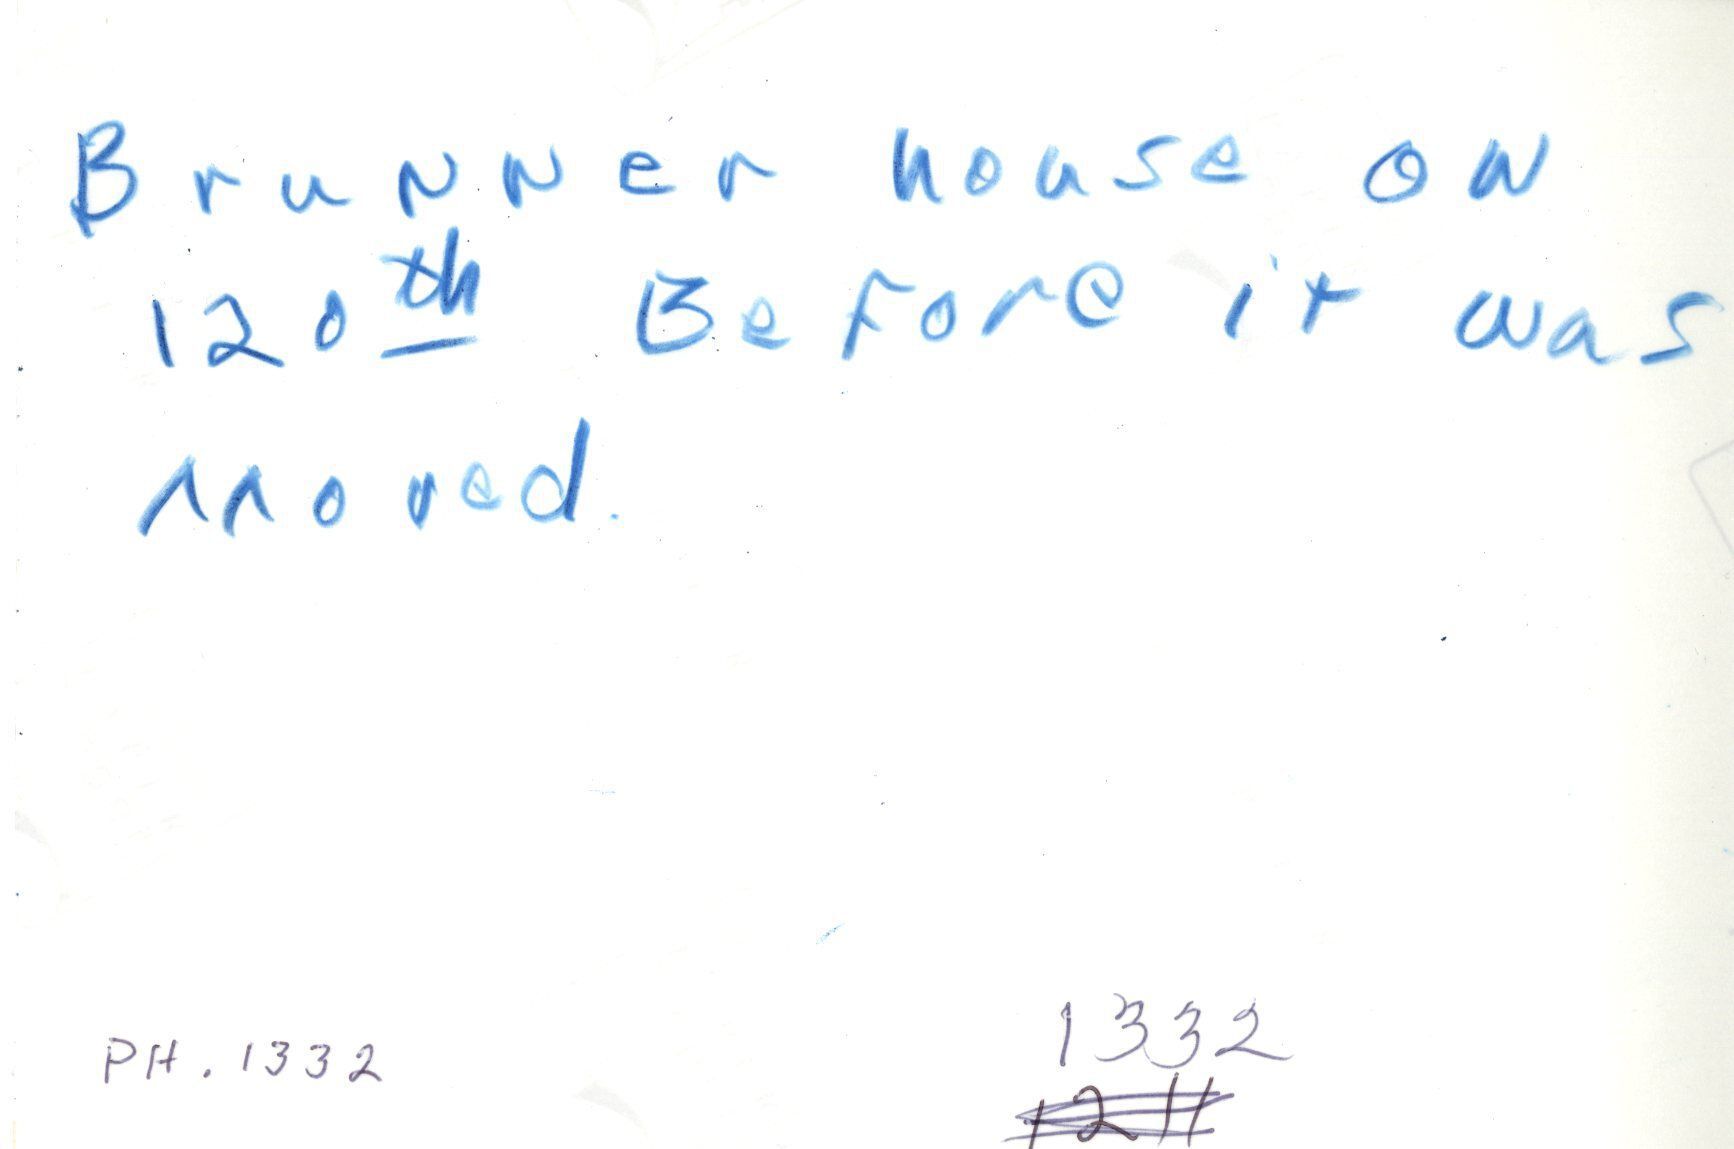 Brunner house on
120th Before it was
moved.
PH. 1332
1332
1211